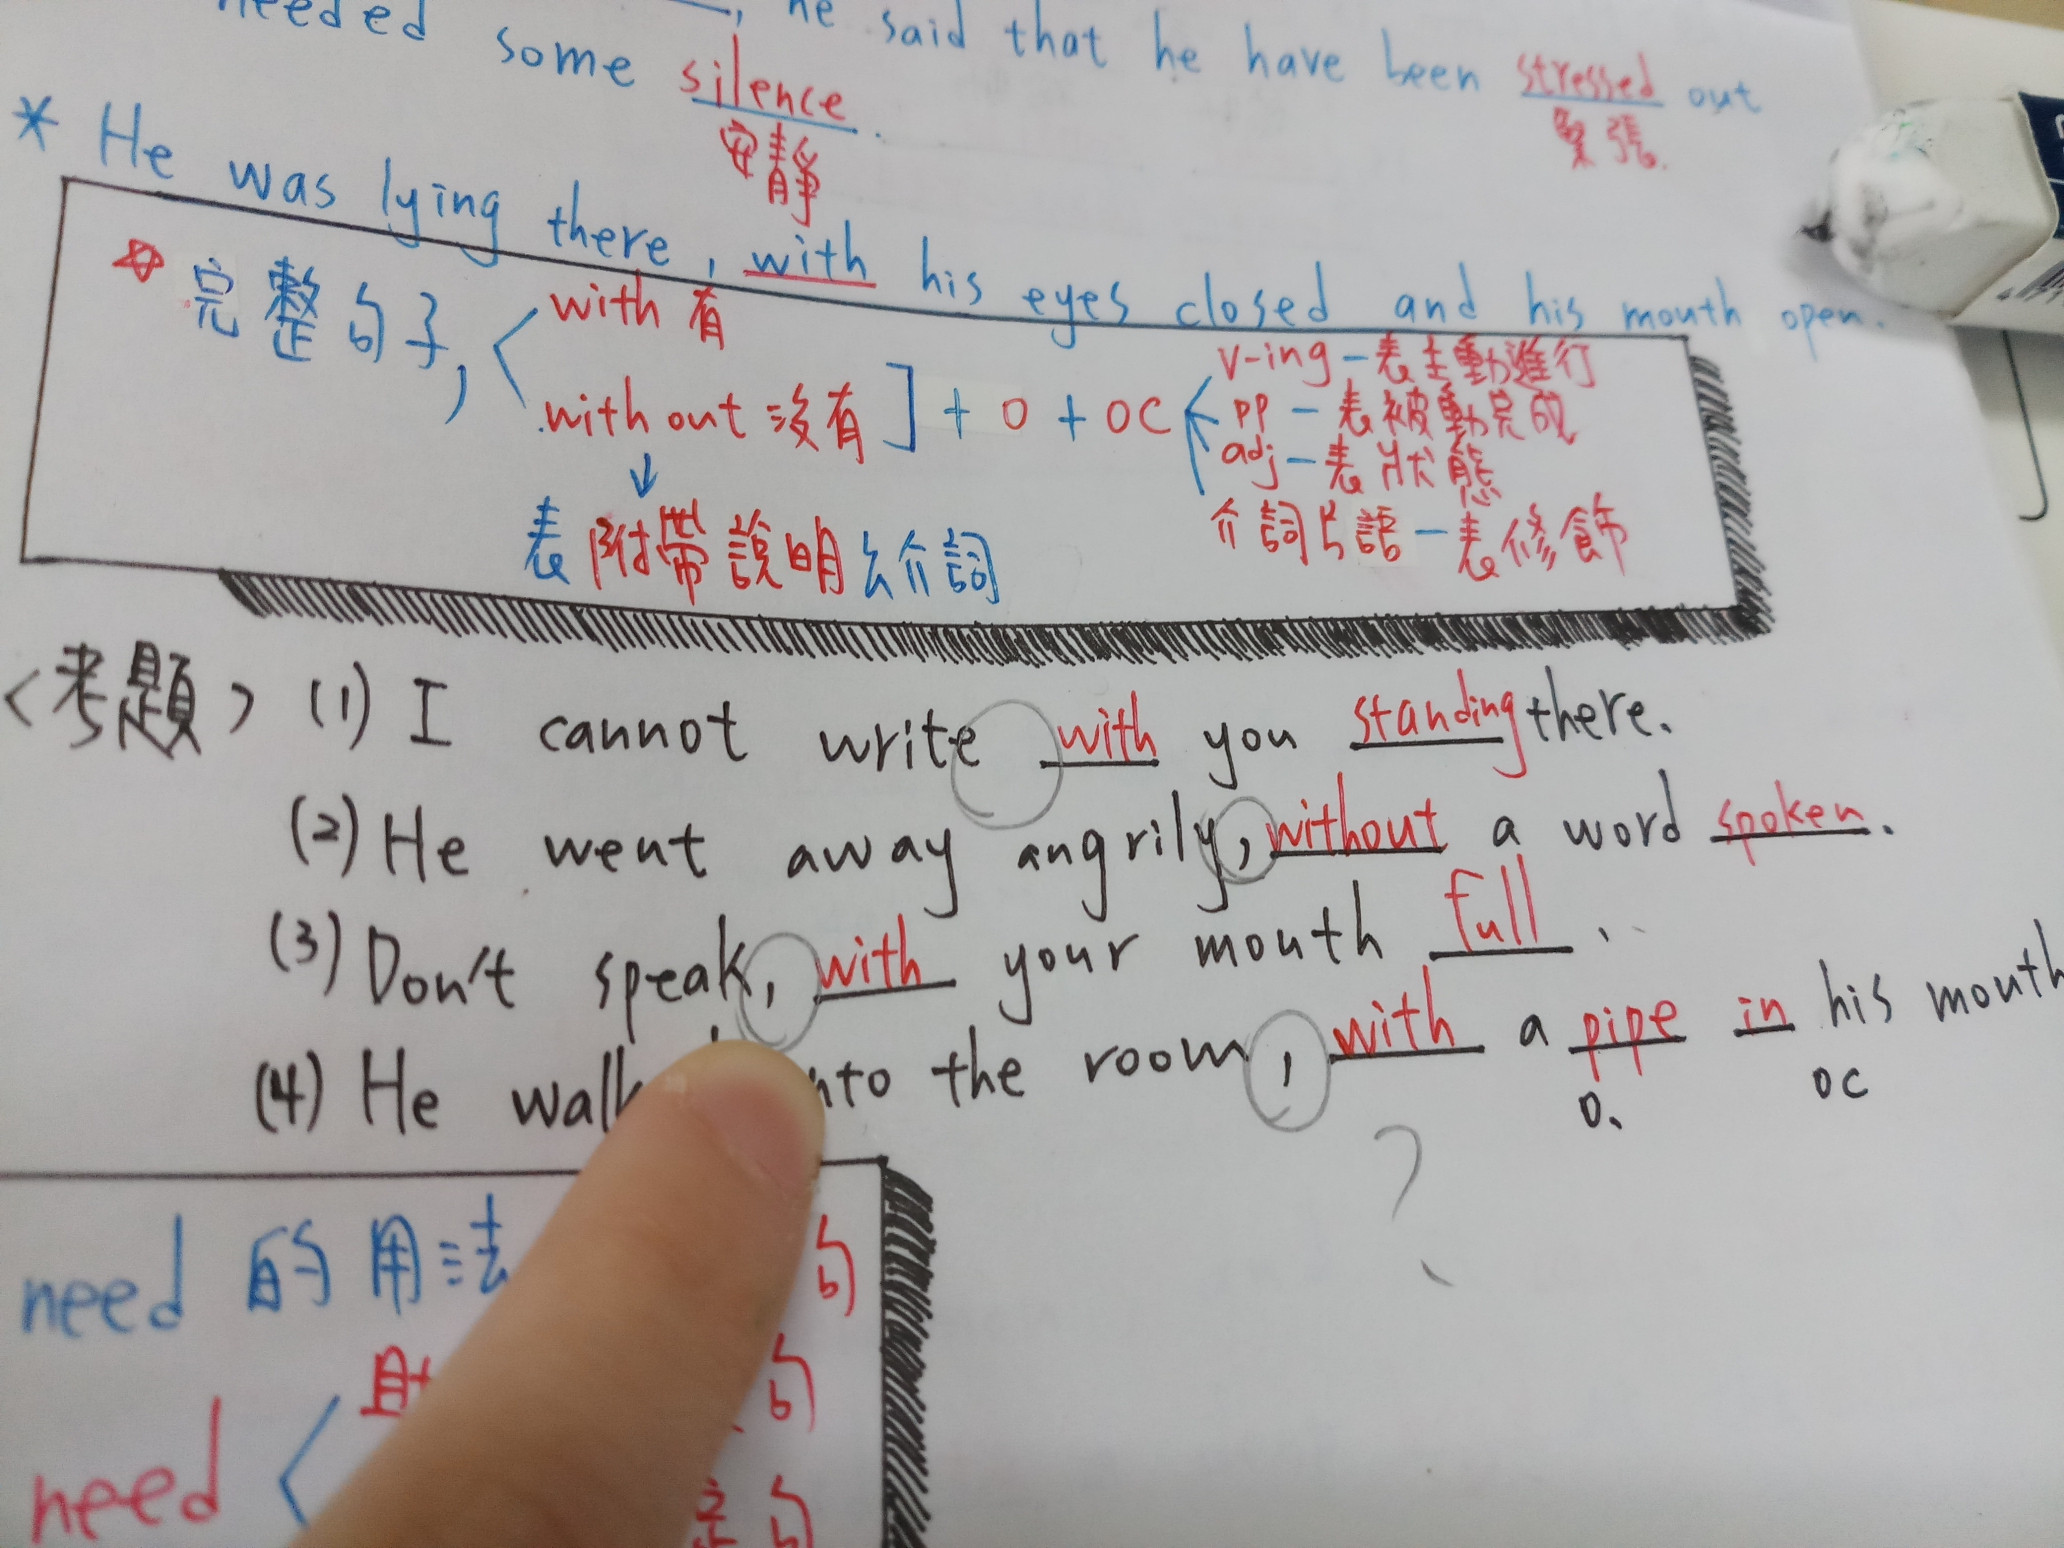 needed some silence. he said that he have been stressed out
安靜 緊張.
* He was lying there, with his eyes closed and his mouth open.
完整句子, with 有
without 沒有 ] + O + OC
V-ing - 表主動進行
pp - 表被動完成
adj - 表狀態
介詞片語 - 表修飾
表附帶說明ㄙ介詞
<考題> (1) I cannot write with you standing there.
(2) He went away angrily, without a word spoken.
(3) Don't speak, with your mouth full.
(4) He the room, with a pipe in his mouth
O. OC
?
need 的用法 句
句
need < 句